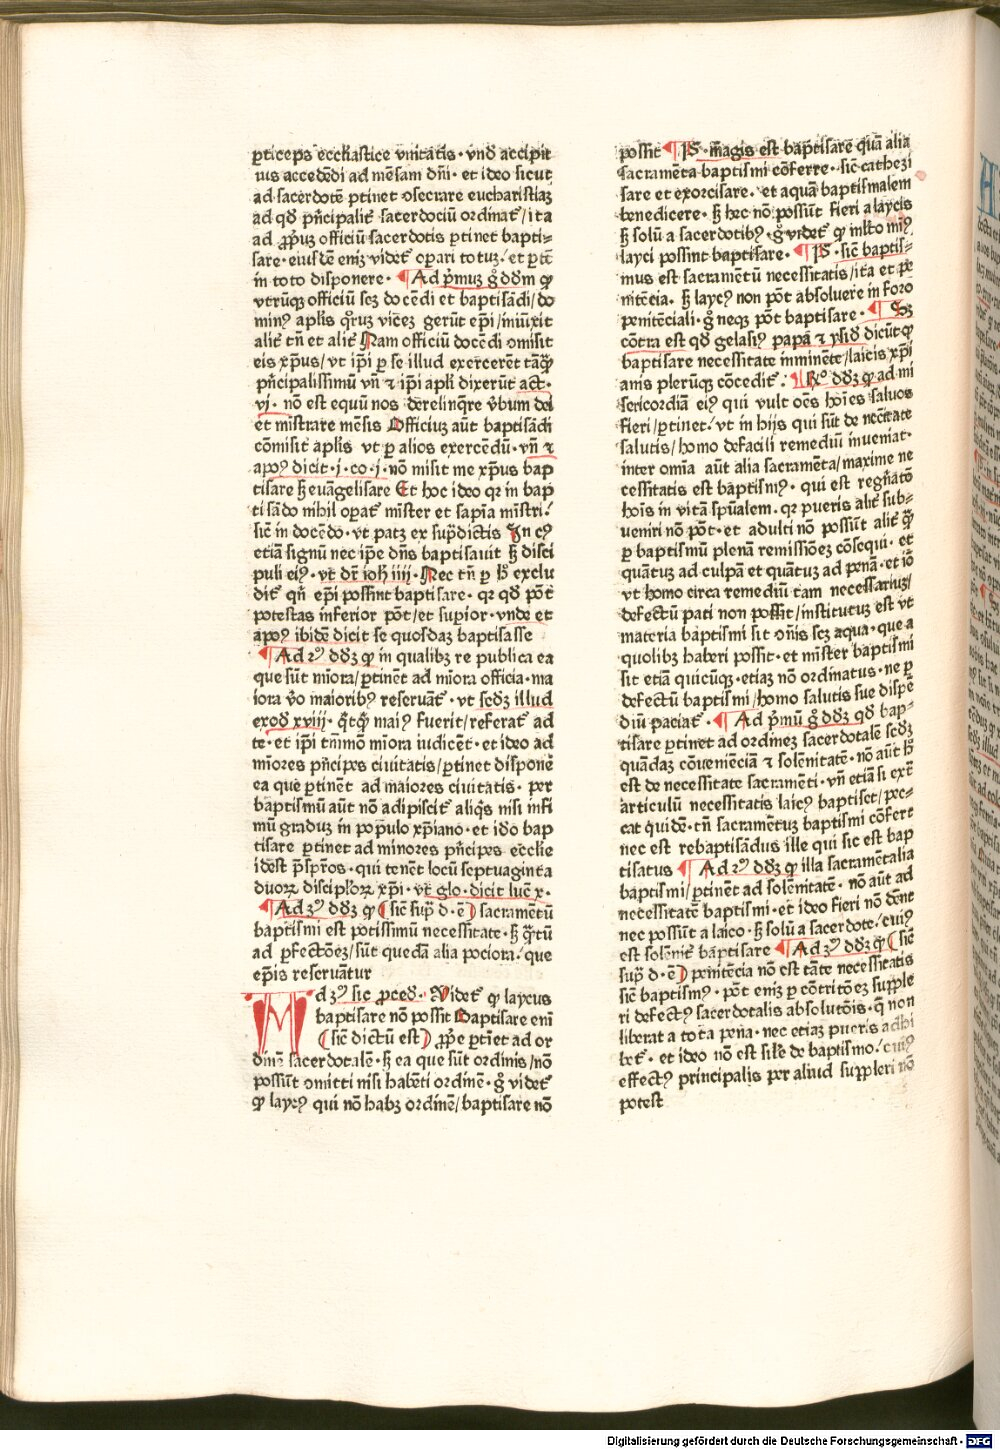 ꝑticeps eccliastice vnitatis · vnd̄ accipit
ius accedēdi ad mēsam dn̄i · et ideo sicut
ad sacerdotē ꝑtinet ↄsecrare eucharistiaꝫ
ad qd̄ pn̄cipalit̄ sacerdociū ordinat̄ / ita
ad ꝓpꝛiuꝫ officiū sacerdotis ꝑtinet bapti⸗
sare · eiusdē enī videt̄ oꝑari totuꝫ / et ꝑtē
in toto disponere · ¶ Ad pͥmuꝫ g̊ dōm ꝙ
vtrūqꝫ officiū scꝫ docēdi et baptisādi / do
minꝰ apl̄is qͦruꝫ viceꝫ gerūt ep̄i / iniūxit
alit̄ tn̄ et alit̄ Nam officiū docēdi ↄmisit
eis xp̄us / vt ip̄i ꝑ se illud exercerēt tāqͣꝫ
pn̄cipalissimū vn̄ ⁊ ip̄i apl̄i dixerūt act̄ ·
vj · nō est equū nos derelinq̄re v̄bum dei
et mīstrare mēsis Officiuꝫ aūt baptisādi
cōmisit apl̄is vt ꝑ alios exercēdū · vn̄ ⁊
apꝰꝯ dicit · j · co · j · nō misit me xp̄us bap
tisare sꝫ euāgelisare Et hoc ideo qꝛ in bap
tisādo nihil oꝑat̄ mīster et sapīa mīstri /
sic̄ in docēdo · vt patꝫ ex sup̄dictis In cꝰ
etiā signū nec ip̄e dn̄s baptisauit sꝫ disci
puli eiꝰ · vt dr̄ ioh̄ iiij · Nec tn̄ ꝑ h̄ exclu
dit̄ qn̄ ep̄i possint baptisare · qꝛ qd̄ pōt
potestas inferior pōt / et suꝑior · vnde et
apꝰꝯ ibidē dicit se quosdaꝫ baptisasse
¶ Ad 2ꝰ dōꝫ ꝙ in qualibꝫ re publica ea
que sūt mīora / ꝑtinēt ad mīora officia · ma
iora v̄o maioribꝰ reseruāt̄ · vt sedꝫ illud
exod̄ xviij · qͥcqͥd maiꝰ fuerit / referāt ad
te · et ip̄i tm̄mō mīora iudicēt · et ideo ad
mīores pn̄cipes ciuitatis / ꝑtinet disponē
ea que ꝑtinēt ad maiores ciuitatis · per
baptismū aūt nō adipiscit̄ aliqͥs nisi infi
mū graduꝫ in populo xp̄iano · et idō bap
tisare ꝑtinet ad minores pn̄cipes eccl̄ie
idest p̄sp̄ros · qui tenēt locū septuaginta
duorꝝ discipl̄orꝝ xp̄i · vt glo · dicit luc̄ x ·
¶ Ad 3ꝰ dōꝫ ꝙ ( sic̄ sup̄ · d · ē ) sacramētū
baptismi est potissimū necessitate · sꝫ qͣꝫtū
ad ꝑfectōeꝫ / sūt quedā alia pociora / que
ep̄is reseruātur
Ad 3ꝰ sic ꝓced̄ · Videt̄ ꝙ laycus
baptisare nō possit Baptisare enī
( sic̄ dictū est ) ꝓpͥe ꝑtīet ad or
dinē sacerdotalē · sꝫ ea que sūt ordinis / nō
possūt ↄmitti nisi habēti ordinē · g̊ videt̄
ꝙ laycꝰ qui nō habꝫ ordinē / baptisare nō
possit ¶ P̄ · magis est baptisare quā alia
sacramēta baptismi cōferre · sic̄ cathezi
sare et exorcisare · et aquā baptismalem
benedicere · sꝫ hec nō possūt fieri a laycis
sꝫ solū a sacerdotibꝰ · g̊ videt̄ ꝙ ml̄to minꝰ
layci possint baptisare · ¶ P̄ · sic̄ baptis⸗
mus est sacramētū necessitatis / ita et pe
nitēcia · sꝫ laycꝰ non pōt absoluere in foro
penitēciali · g̊ neqꝫ pōt baptisare · ¶ Sꝫ
cōtra est qd̄ gelasiꝰ papa ⁊ ysid̄ dicūt ꝙ
baptisare necessitate inminēte / laicis xp̄i
anis plerūqꝫ cōcedit̄ · ¶ Rͦ dōꝫ ꝙ ad mi
sericordiā eiꝰ qui vult oēs hoīes saluos
fieri / ꝑtinet / vt in hijs qui sūt de nēcitate
salutis / homo defacili remediū inueniat ·
inter omīa aūt alia sacramēta / maxime ne
cessitatis est baptismꝰ · qui est regn̄atō
hoīs in vitā sp̄ualem · qꝛ pueris alit̄ sub⸗
ueniri nō pōt · et adulti nō possūt alit̄ qͣꝫ
ꝑ baptismū plenā remissiōeꝫ cōsequi · et
quātuꝫ ad culpā et quātuꝫ ad penā · et iō
vt homo circa remediū tam necessariuꝫ /
defectū pati non possit / institutuꝫ est vt
materia baptismi sit ↄn̄is scꝫ aqua · que a
quolibꝫ haberi possit · et mīster baptismi
sit etiā quicūqꝫ · etiaꝫ nō ordinatus · ne ꝑ
defectū baptismi / homo salutis sue dispē
diū paciat̄ · ¶ Ad pͥmū g̊ dōꝫ qd̄ bap⸗
tisare ꝑtinet ad ordineꝫ sacerdotalē scdꝫ
quādaꝫ cōueniēciā ⁊ solēnitatē · nō aūt h̄
est de necessitate sacramēti · vn̄ etiā si extͣ
articulū necessitatis laicꝰ baptiset / pec⸗
cat quidē · tn̄ sacramētuꝫ baptismi cōfert
nec est rebaptisādus ille qui sic est bap
tisatus ¶ Ad 2ꝰ dōꝫ ꝙ illa sacramētalia
baptismi / ꝑtinēt ad solēnitatē · nō aūt ad
necessitatē baptismi · et ideo fieri nō dēnt
nec possūt a laico · sꝫ solū a sacerdote / cuiꝰ
est solēnit̄ baptisare ¶ Ad 3ꝰ dōꝫ ꝙ ( sic̄
sup̄ · d · ē ) penitēcia nō est tāte necessitatis
sic̄ baptismꝰ · pōt enīꝫ ꝑ cōtritōeꝫ supple
ri defectꝰ sacerdotalis absolutōis · q̄ non
liberat a tota pena · nec etiaꝫ pueris adhi
bet̄ · et ideo nō est sil̄e de baptismo / cuiꝰ
effectꝰ principalis per aliud suppleri nō
potest
Digitalisierung gefördert durch die Deutsche Forschungsgemeinschaft - DFG